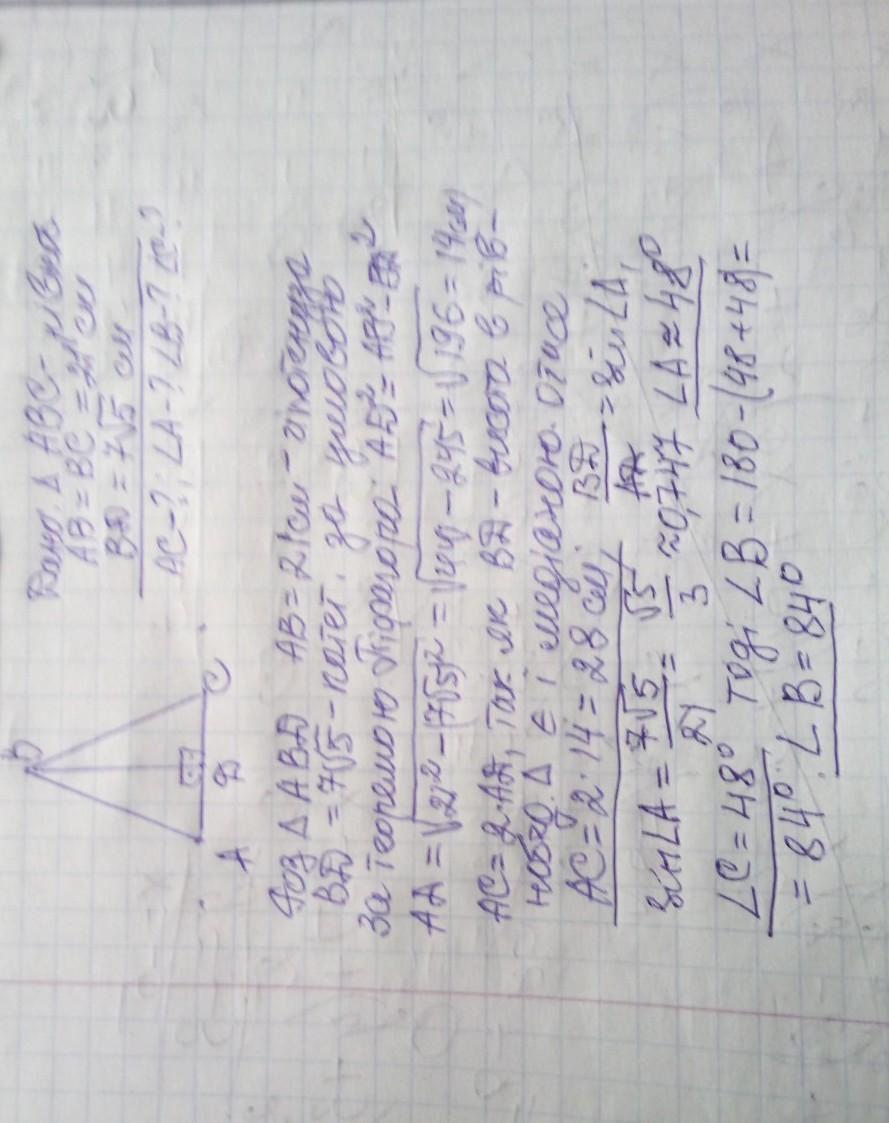 B
A
D
C
Дано. Δ ABC - рівноб.
AB = BC = 21 см
BD = 7√5 см
AC-?; ∠A-? ∠B-? ∠C-?
Розг Δ ABD AB = 21 см - гіпотенуза
BD = 7√5 - катет. за умовою
За теоремою Піфагора: AD² = AB² - BD²
AD = √21² - (7√5)² = √441 - 245 = √196 = 14 см,
AC = 2·AD, так як BD - висота в рів-
нобед. Δ є і медіаною. Отже
AC = 2·14 = 28 см, BD/AD = sin∠A,
sin∠A = 7√5/21 = √5/3 ≈ 0,747 ∠A ≈ 48°
∠C = 48° тоді ∠B = 180-(48+48)=
= 84°. ∠B = 84°